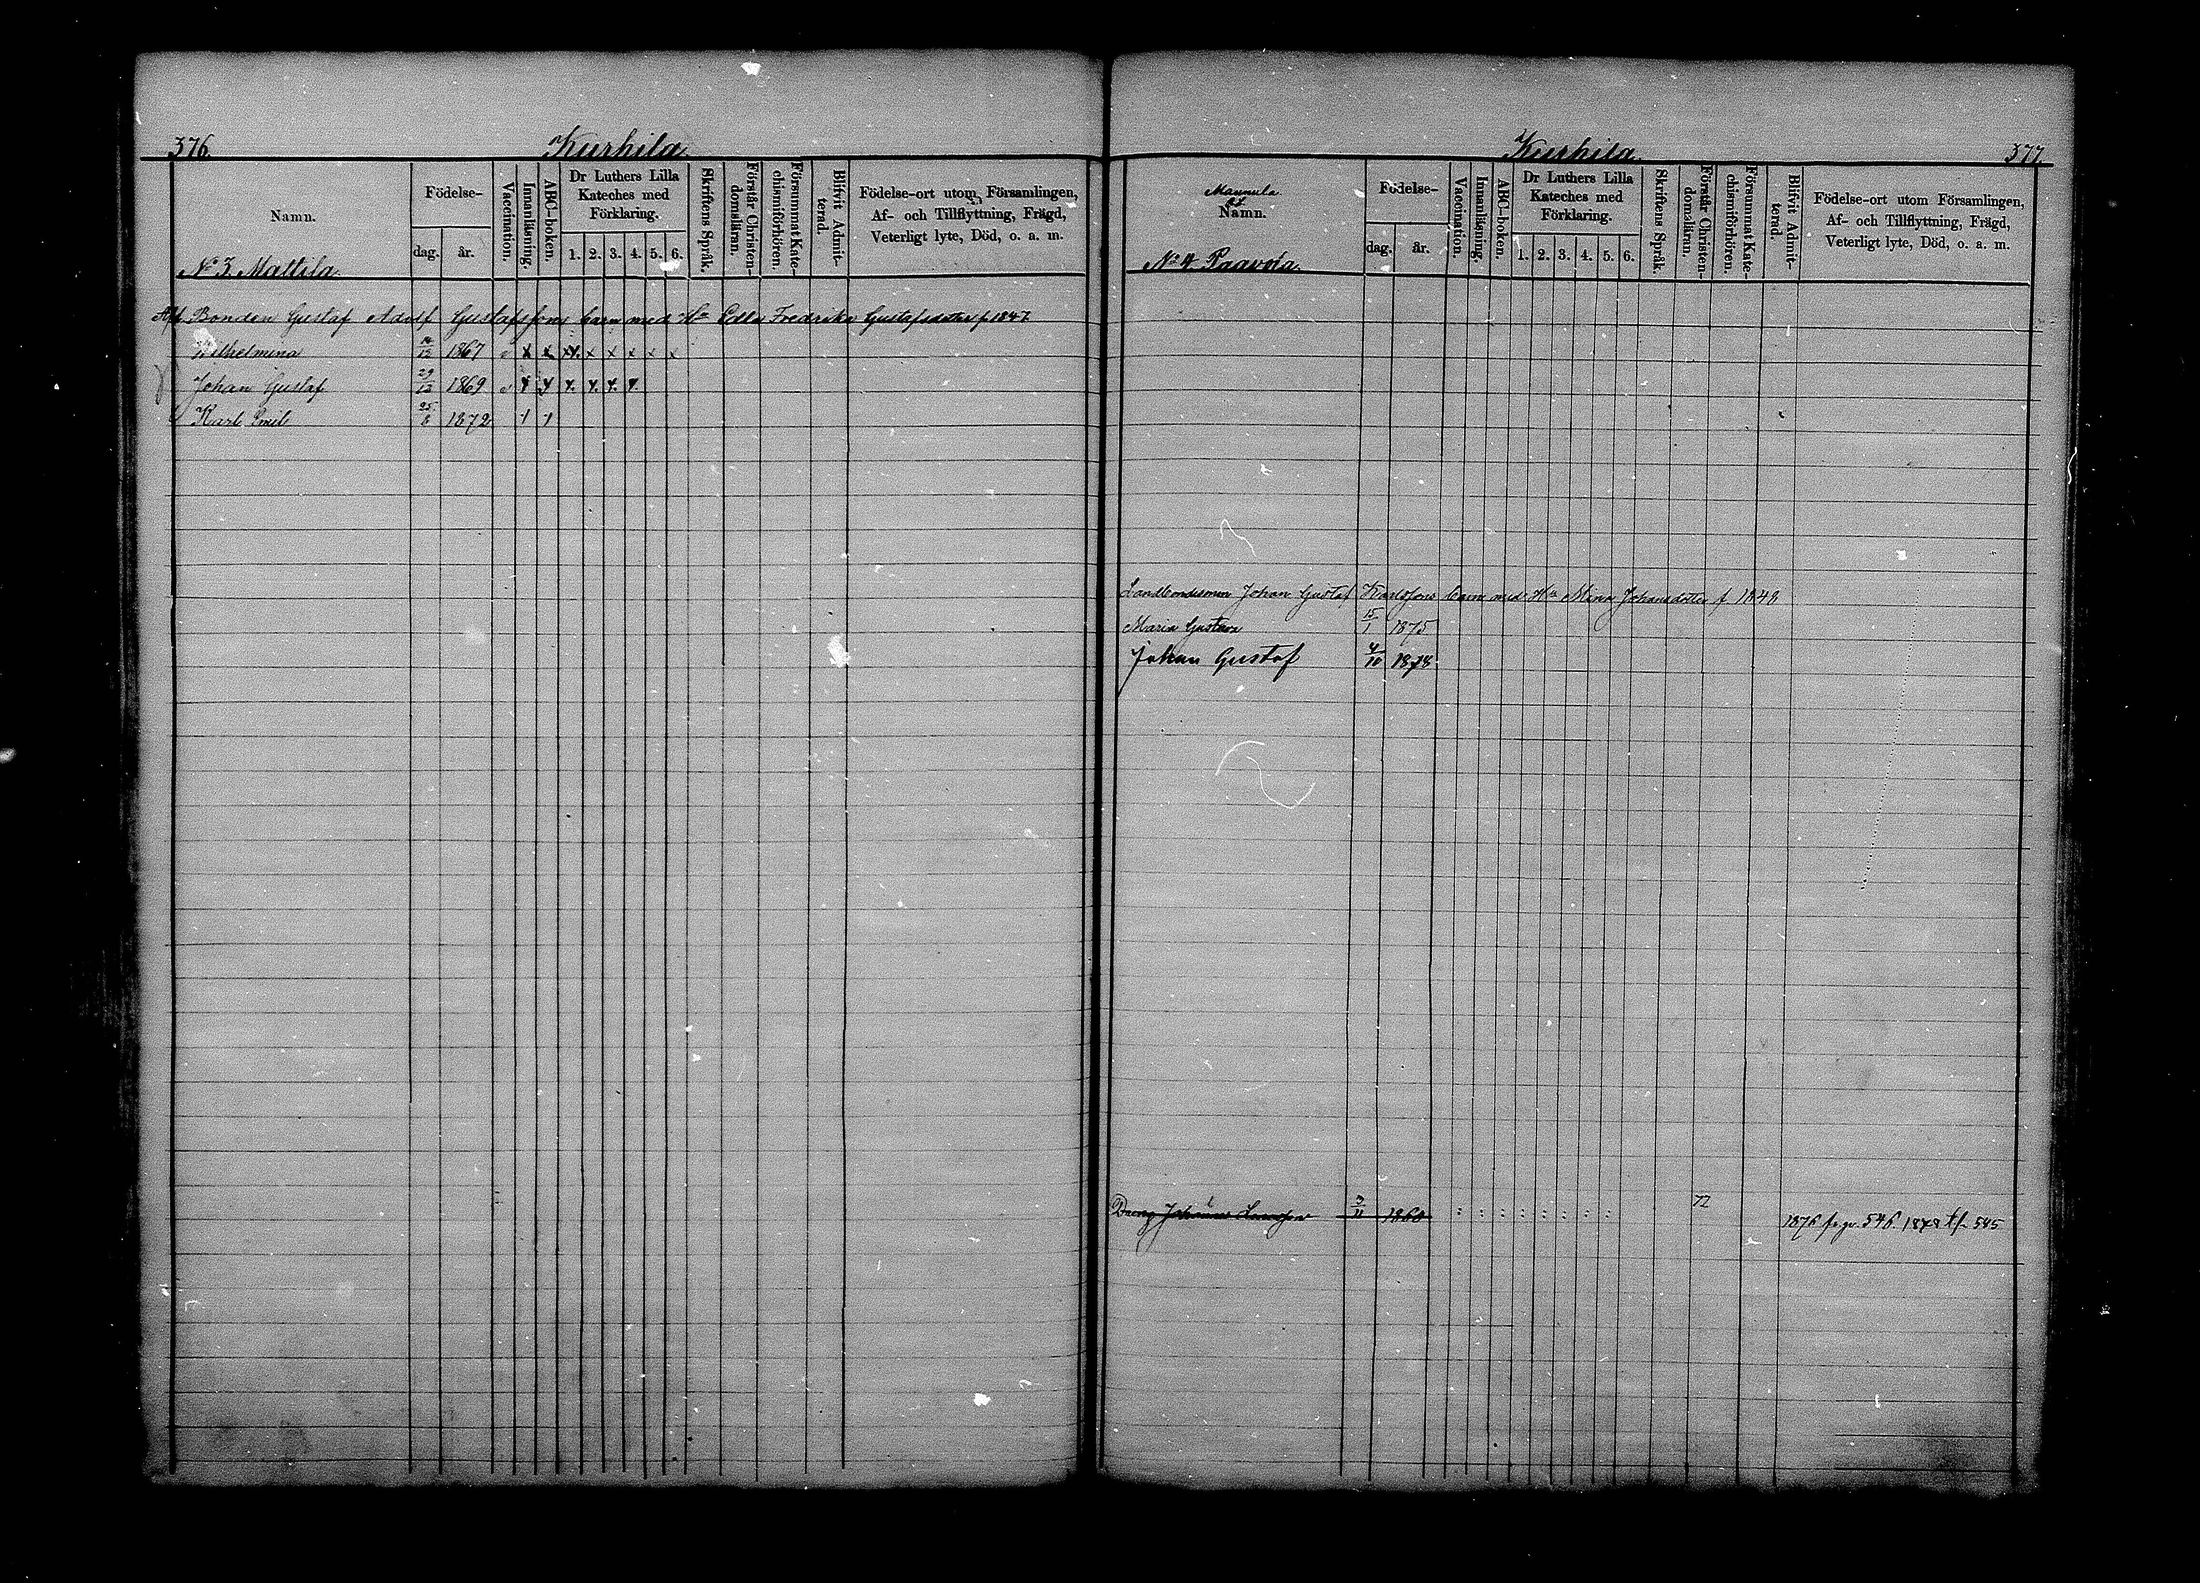 376.
Kurhila.
Namn.
Födelse-
dag. år.
Vaccination.
Innanläsning.
ABC-boken.
Dr Luthers Lilla Kateches med Förklaring.
1. 2. 3. 4. 5. 6.
Skriftens Språk.
Förstår Christendomsläran.
Försummat Katechismiförhören.
Blifvit Admitterad.
Födelse-ort utom Församlingen,
Af- och Tillflyttning, Frägd,
Veterligt lyte, Död, o. a. m.
No 3. Mattila.
Bonden Gustaf Adolf Gustafssons barn med Hu Edla Fredrika Gustafsdotter f. 1847
Wilhelmina 1867 x x x x x x x x
Johan Gustaf 29/12 1869
Karl Emil 25/8 1872
Kurhila.
377.
Mannula
Namn.
Födelse-
dag. år.
Vaccination.
Innanläsning.
ABC-boken.
Dr Luthers Lilla Kateches med Förklaring.
1. 2. 3. 4. 5. 6.
Skriftens Språk.
Förstår Christendomsläran.
Försummat Katechismiförhören.
Blifvit Admitterad.
Födelse-ort utom Församlingen,
Af- och Tillflyttning, Frägd,
Veterligt lyte, Död, o. a. m.
No 4. Paavola.
Johan Gustaf Karlssons barn med Hu Mina Johansdotter f 1848
Maria Gustava 15/1 1875
Johan Gustaf 4/10 1878
Dreng 3/11 1860 77 1876 fr. 546. 1878 tf. 545